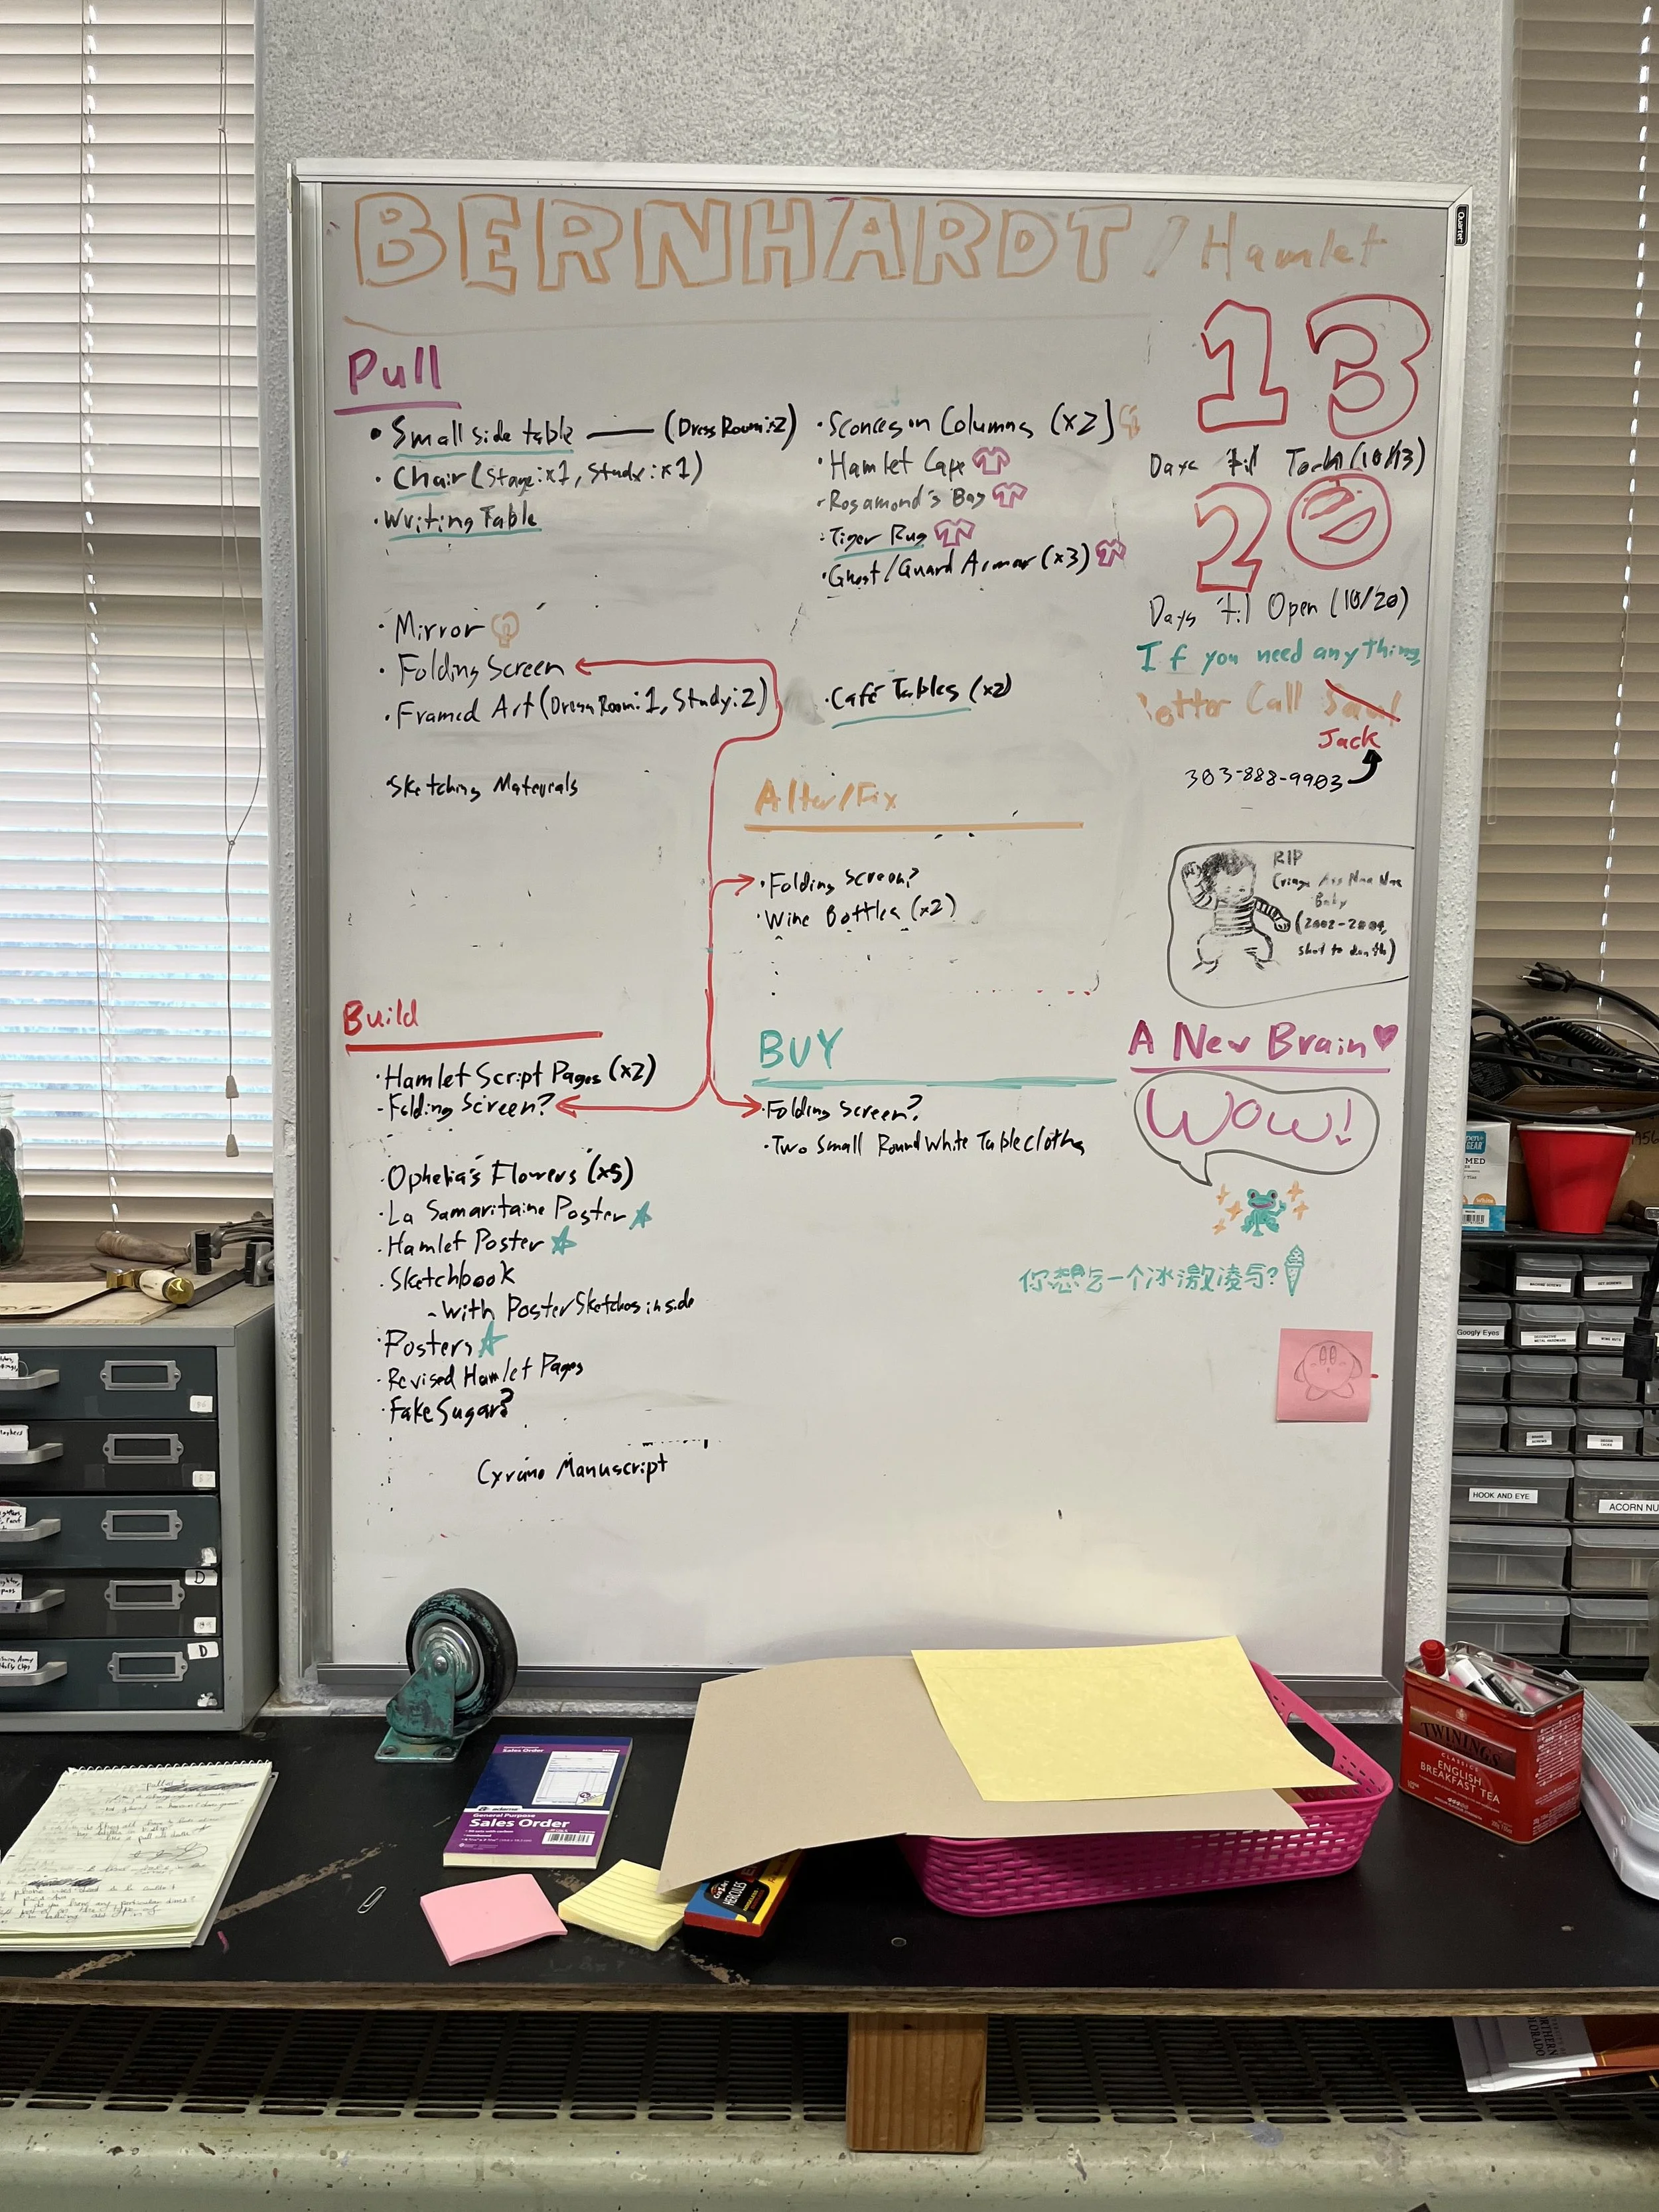 BERNHARDT / Hamlet
Pull
• Small side table — (Dress Room: x2)
• Chair (Stage: x1, Study: x1)
• Writing Table
• Mirror
• Folding Screen
• Framed Art (Dress Room: 1, Study: 2)
• Sketching Materials
• Sconces on Columns (x2)
• Hamlet Cape
• Rosamond's Bag
• Tiger Rug
• Ghost/Guard Armor (x3)
• Café Tables (x2)
Alter/Fix
• Folding Screen?
• Wine Bottles (x2)
Build
• Hamlet Script Pages (x2)
- Folding Screen?
• Ophelia's Flowers (x5)
• La Samaritaine Poster
• Hamlet Poster
• Sketchbook
- With Poster Sketches inside
• Posters
• Revised Hamlet Pages
• Fake Sugar?
Cyrano Manuscript
BUY
• Folding Screen?
• Two Small Round White Tablecloths
13
Days 'til Tech (10/13)
20
Days 'til Open (10/20)
If you need anything
Better Call Saul
Jack
303-888-9903
RIP
Cringe Ass Nae Nae
Baby
(2002-2009,
shot to death)
A New Brain
WOW!
你想吃一个冰激凌吗?
Quartet
Googly Eyes
HOOK AND EYE
ACORN NU
D
D
General Purpose
Sales Order
adams
General Purpose
Sales Order
HERCULES
TWININGS
CLASSICS
ENGLISH
BREAKFAST TEA